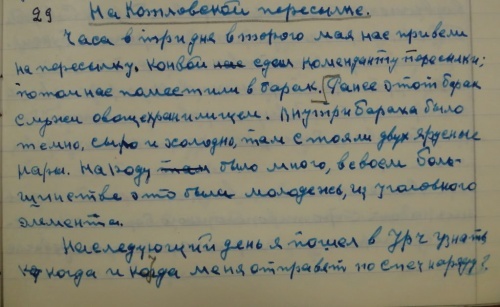 29 На Котловской пересылке.
Часа в три дня второго мая нас привели
на пересылку. Конвой сдал коменданту пересылки;
потом нас поместили в барак. Ранее этот барак
служил овощехранилищем. Внутри барака было
темно, сыро и холодно, там стояли двух ярусные
нары. Народу было много, в своем боль-
шинстве это была молодежь, из уголовного
элемента.
На следующий день я пошел в УРЧ узнать
когда и куда меня отправят по спец наряду?